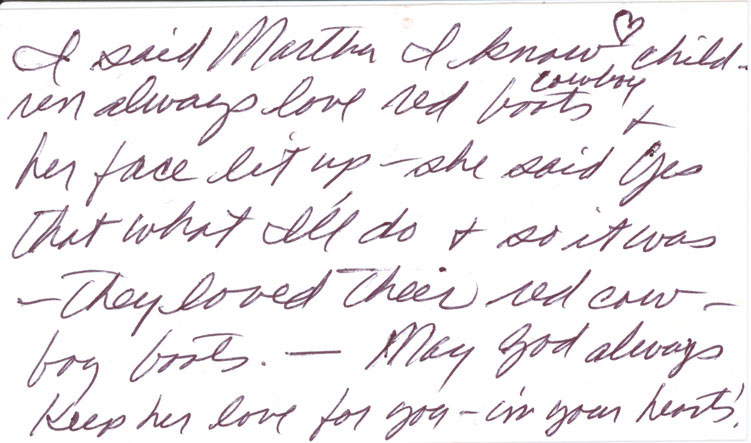 I said Martha I know ♡ child-
ren always love red cowboy boots +
her face lit up – she said Yes
that what I'll do + so it was
– They loved their red cow–
boy boots. — May God always
Keep her love for you – in your hearts!